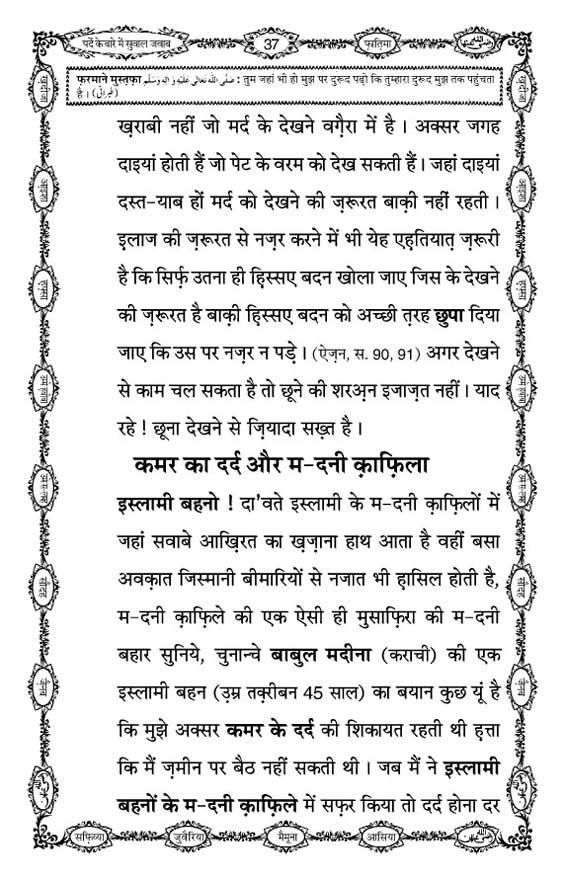 पर्दे के बारे में सुवाल जवाब
37
फ़ातिमा
फ़रमाने मुस्तफ़ा صَلَّى اللهُ تَعَالٰى عَلَيْهِ وَاٰلِهٖ وَسَلَّم : तुम जहां भी हो मुझ पर दुरूद पढ़ो कि तुम्हारा दुरूद मुझ तक पहुंचता
है । (طبرانی)
ख़राबी नहीं जो मर्द के देखने वग़ैरा में है । अक्सर जगह
दाइयां होती हैं जो पेट के वरम को देख सकती हैं । जहां दाइयां
दस्त-याब हों मर्द को देखने की ज़रूरत बाक़ी नहीं रहती ।
इलाज की ज़रूरत से नज़र करने में भी येह एहतियात़ ज़रूरी
है कि सिर्फ़ उतना ही ह़िस्सए बदन खोला जाए जिस के देखने
की ज़रूरत है बाक़ी ह़िस्सए बदन को अच्छी त़रह छुपा दिया
जाए कि उस पर नज़र न पड़े । (ऐज़न, स. 90, 91) अगर देखने
से काम चल सकता है तो छूने की शरअ़न इजाज़त नहीं । याद
रहे ! छूना देखने से ज़ियादा सख़्त है ।
कमर का दर्द और म-दनी क़ाफ़िला
इस्लामी बहनो ! दा'वते इस्लामी के म-दनी क़ाफ़िलों में
जहां सवाबे आख़िरत का ख़ज़ाना हाथ आता है वहीं बसा
अवक़ात जिस्मानी बीमारियों से नजात भी ह़ासिल होती है,
म-दनी क़ाफ़िले की एक ऐसी ही मुसाफ़िरा की म-दनी
बहार सुनिये, चुनान्चे बाबुल मदीना (कराची) की एक
इस्लामी बहन (उ़म्र तक़्रीबन 45 साल) का बयान कुछ यूं है
कि मुझे अक्सर कमर के दर्द की शिकायत रहती थी ह़त्ता
कि मैं ज़मीन पर बैठ नहीं सकती थी । जब मैं ने इस्लामी
बहनों के म-दनी क़ाफ़िले में सफ़र किया तो दर्द होना दर
सफ़िय्या
जुवैरिया
मैमूना
आसिया